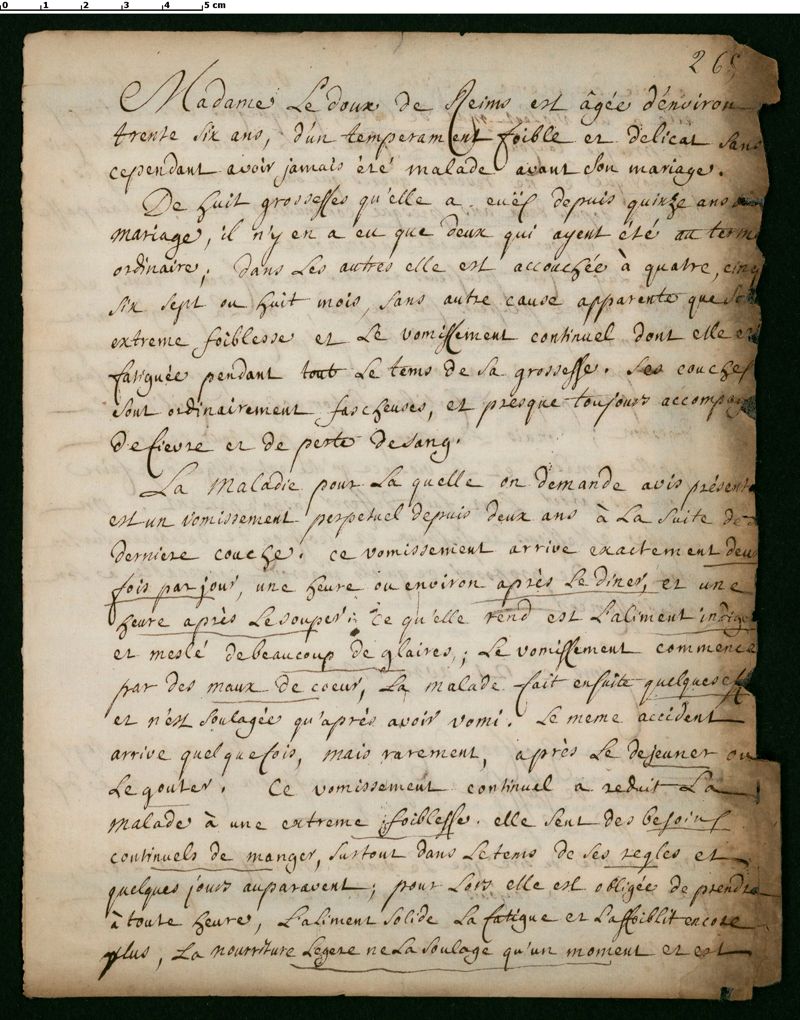 0 1 2 3 4 5 cm
Madame Le doux de Reims est âgée d'environ
trente six ans, d'un temperament foible et délicat sans
cependant avoir jamais été malade avant son mariage.
De huit grossesses qu'elle a euës depuis quinze ans
mariage, il n'y en a eu que deux qui ayent été au terme
ordinaire; dans Les autres elle est accouchée à quatre, cinq
six sept ou huit mois, sans autre cause apparente que
extreme foiblesse et Le vomissement continuel dont elle
fatiguée pendant tout Le tems de sa grossesse. Ses couches
sont ordinairement fascheuses, et presque toujours
de fievre et de perte de sang.
La maladie pour La quelle on demande avis
est un vomissement perpetuel depuis deux ans à La suite de
derniere couche. ce vomissement arrive exactement deux
fois par jour, une heure ou environ après Le diner, et une
heure après Le souper; ce qu'elle rend est L'aliment
et meslé de beaucoup de glaires,; Le vomissement commence
par des maux de coeur, La malade fait ensuite quelques
et n'est soulagée qu'après avoir vomi. Le meme accident
arrive quelquefois, mais rarement, après Le dejeuner ou
Le gouter. Ce vomissement continuel a reduit La
malade à une extreme foiblesse. elle sent des besoins
continuels de manger, surtout dans Le tems de ses regles et
quelques jours auparavent; pour Lors elle est obligée de prendre
à toute heure, L'aliment solide La fatigue et L'affoiblit encore
plus, La nourriture Legere ne La soulage qu'un moment et est